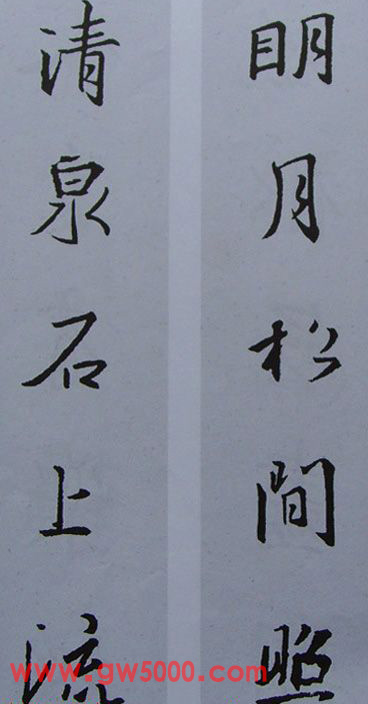 明月松間照
清泉石上流
www.gw5000.com